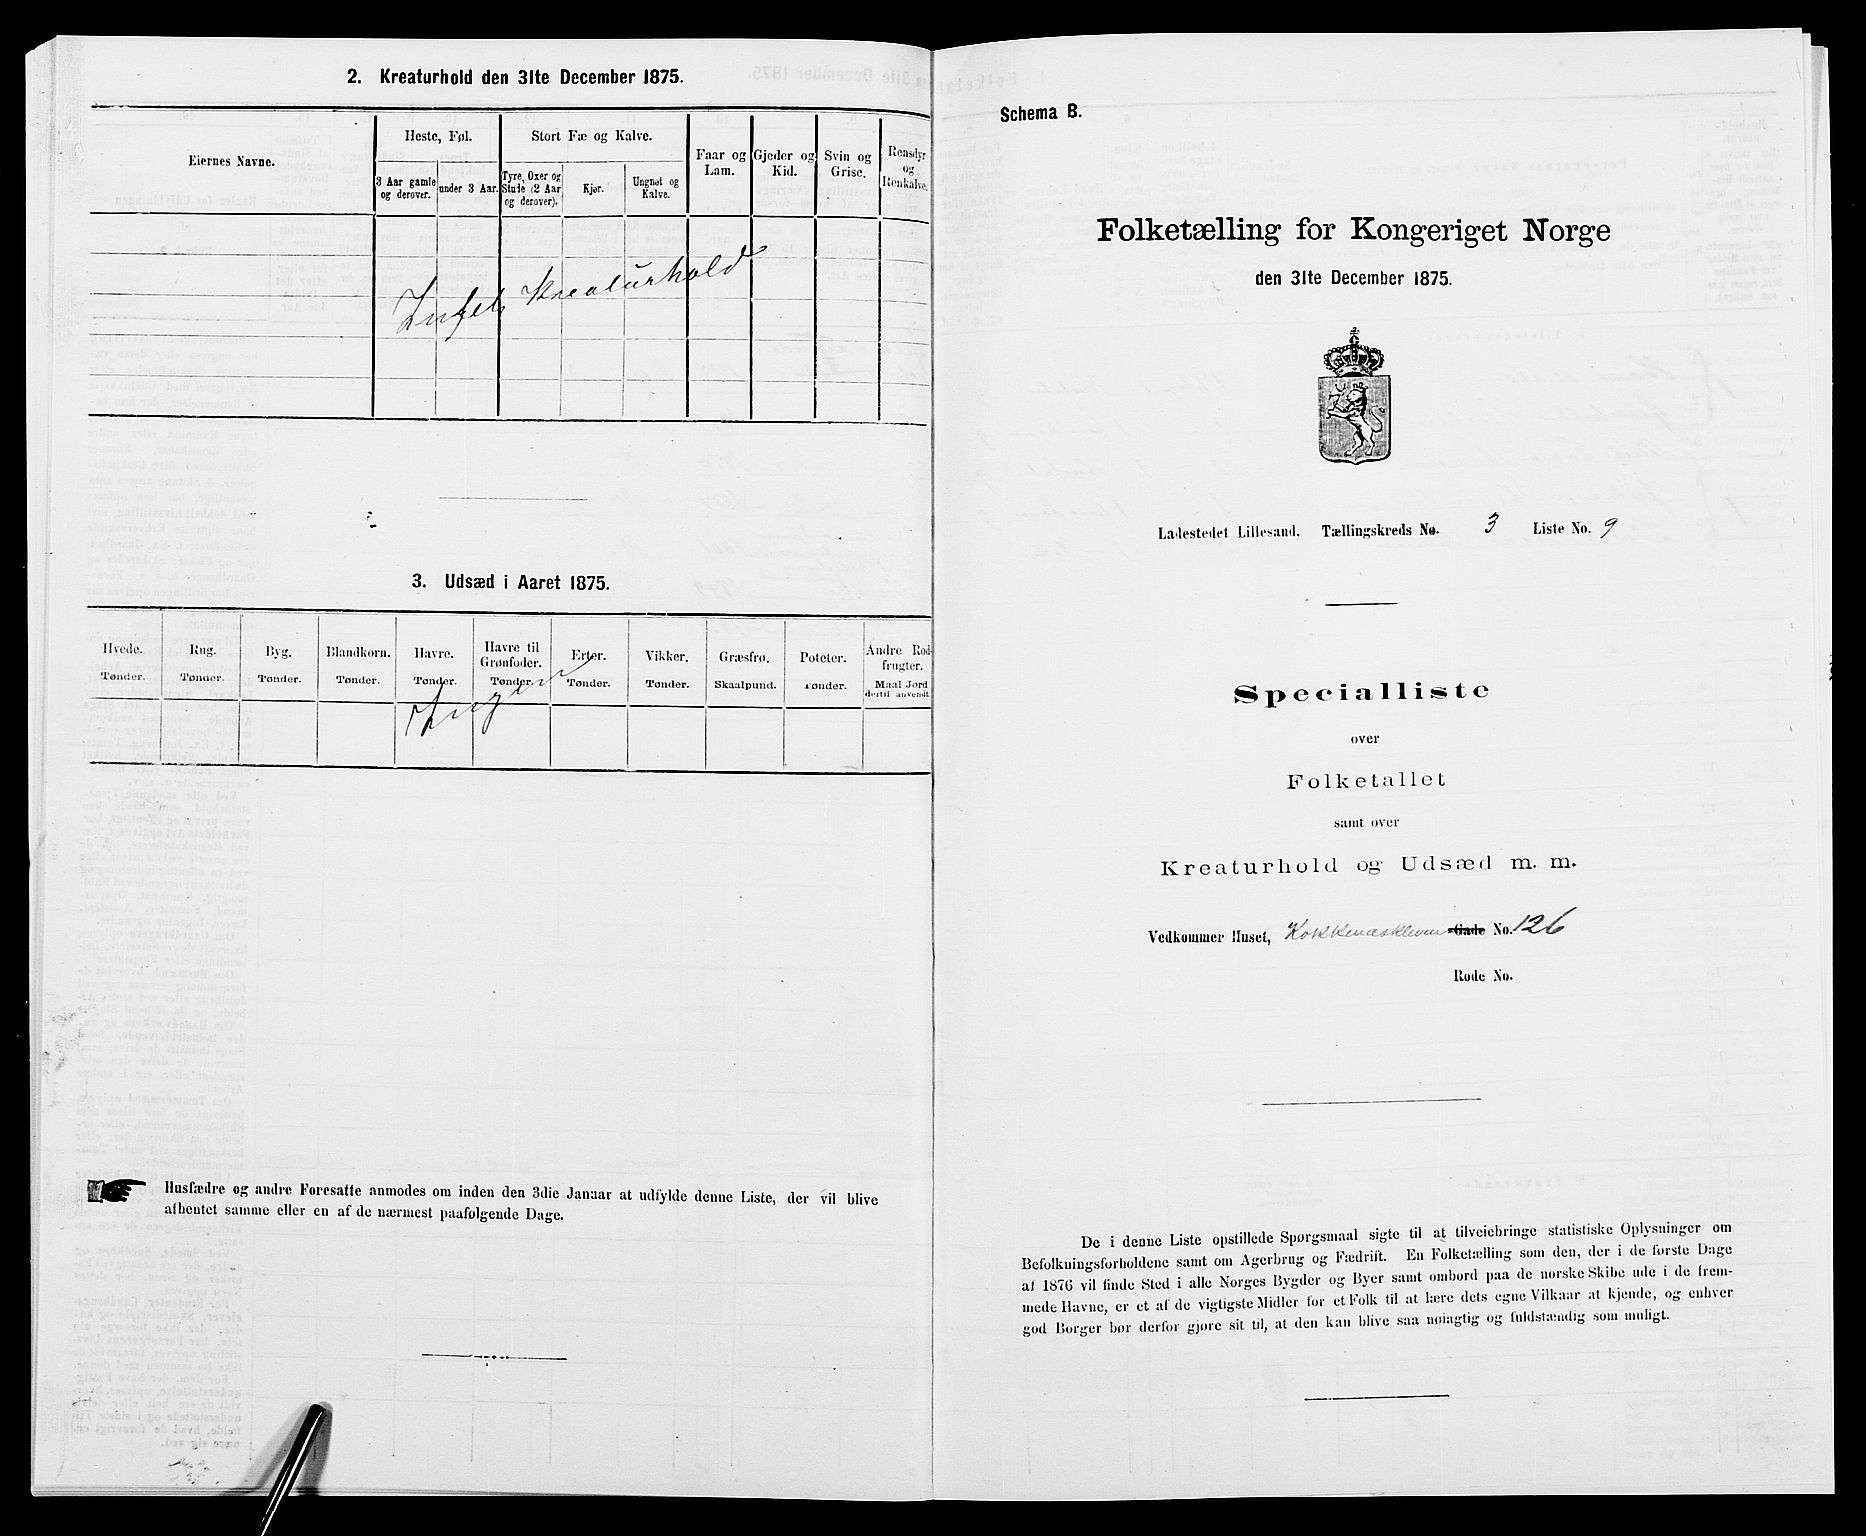 2. Kreaturhold den 31te December 1875.
Eiernes Navne.
Heste, Føl.
3 Aar gamle og derover.
under 3 Aar.
Stort Fæ og Kalve.
Tyre, Oxer og Stude (2 Aar og derover).
Kjør.
Ungnøt og Kalve.
Faar og Lam.
Gjeder og Kid.
Svin og Grise.
Rensdyr og Renkalve.
Kreaturhold
3. Udsæd i Aaret 1875.
Hvede. Rug. Byg. Blandkorn. Havre. Havre til Grønfoder. Erter. Vikker. Græsfrø. Poteter. Andre Rodfrugter.
Tønder. Tønder. Tønder. Tønder. Tønder. Tønder. Tønder. Tønder. Skaalpund. Tønder. Maal Jord dertil anvendt.
Ingen
Husfædre og andre Foresatte anmodes om inden den 3die Januar at udfylde denne Liste, der vil blive
afhentet samme eller en af de nærmest paafølgende Dage.
Schema B.
Folketælling for Kongeriget Norge
den 31te December 1875.
Ladestedet Lillesand. Tællingskreds No. 3 Liste No. 9
Specialliste
over
Folketallet
samt over
Kreaturhold og Udsæd m. m.
Vedkommer Huset, Kokkenaskleven Gade No. 126
Rode No.
De i denne Liste opstillede Spørgsmaal sigte til at tilveiebringe statistiske Oplysninger om
Befolkningsforholdene samt om Agerbrug og Fædrift. En Folketælling som den, der i de første Dage
af 1876 vil finde Sted i alle Norges Bygder og Byer samt ombord paa de norske Skibe ude i de frem-
mede Havne, er et af de vigtigste Midler for et Folk til at lære dets egne Vilkaar at kjende, og enhver
god Borger bør derfor gjøre sit til, at den kan blive saa nøiagtig og fuldstændig som muligt.